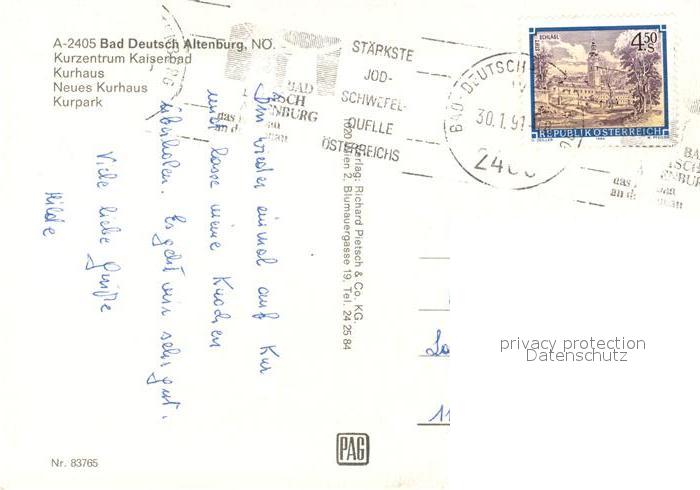 A-2405 Bad Deutsch Altenburg, NÖ.
Kurzentrum Kaiserbad
Kurhaus
Neues Kurhaus
Kurpark
STÄRKSTE
JOD-
SCHWEFEL-
QUELLE
ÖSTERREICHS
BAD-DEUTSCH
30.1.91
STIFT SCHLÄGL
4.50
S
REPUBLIK ÖSTERREICH
Bin wieder einmal auf Kur
und lasse meine Knochen
überholen. Es geht mir sehr gut.
Viele liebe Grüße
Hilde
Verlag: Richard Pietsch & Co. KG.
1020 Wien 2, Blumauergasse 19, Tel. 24 25 84
privacy protection
Datenschutz
PAG
Nr. 83765